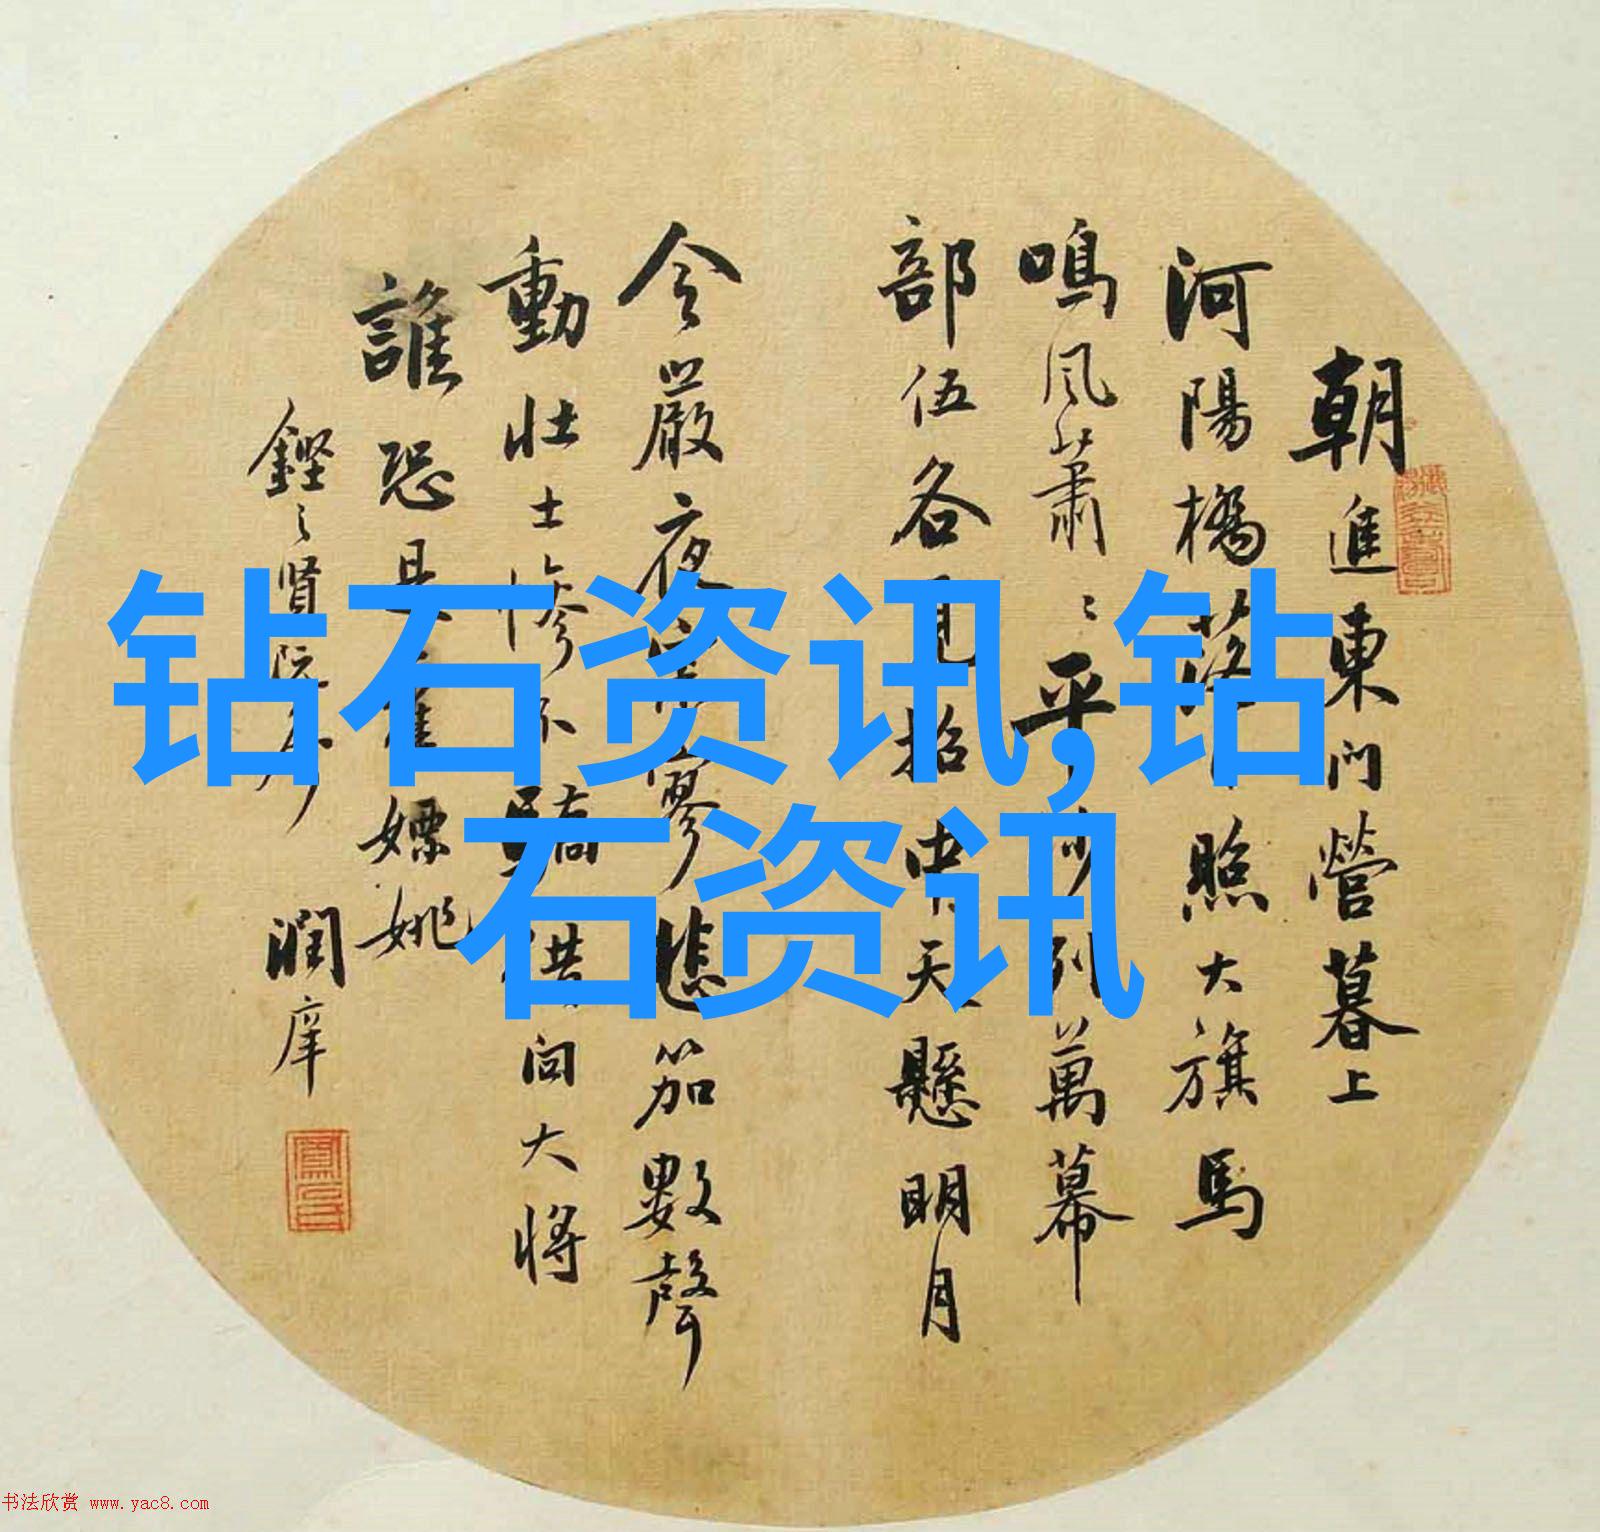 朝進東門營暮上
河陽橋落照大旗馬
鳴風蕭〻平沙列萬幕
部伍各見招中天懸明月
令嚴夜寥悲笳數聲
動壯士慘不驕借問大將
誰恐是霍嫖姚
鏗之賢阮
潤庠
钻石资讯,钻
石资讯
书法欣赏 www.yac8.com